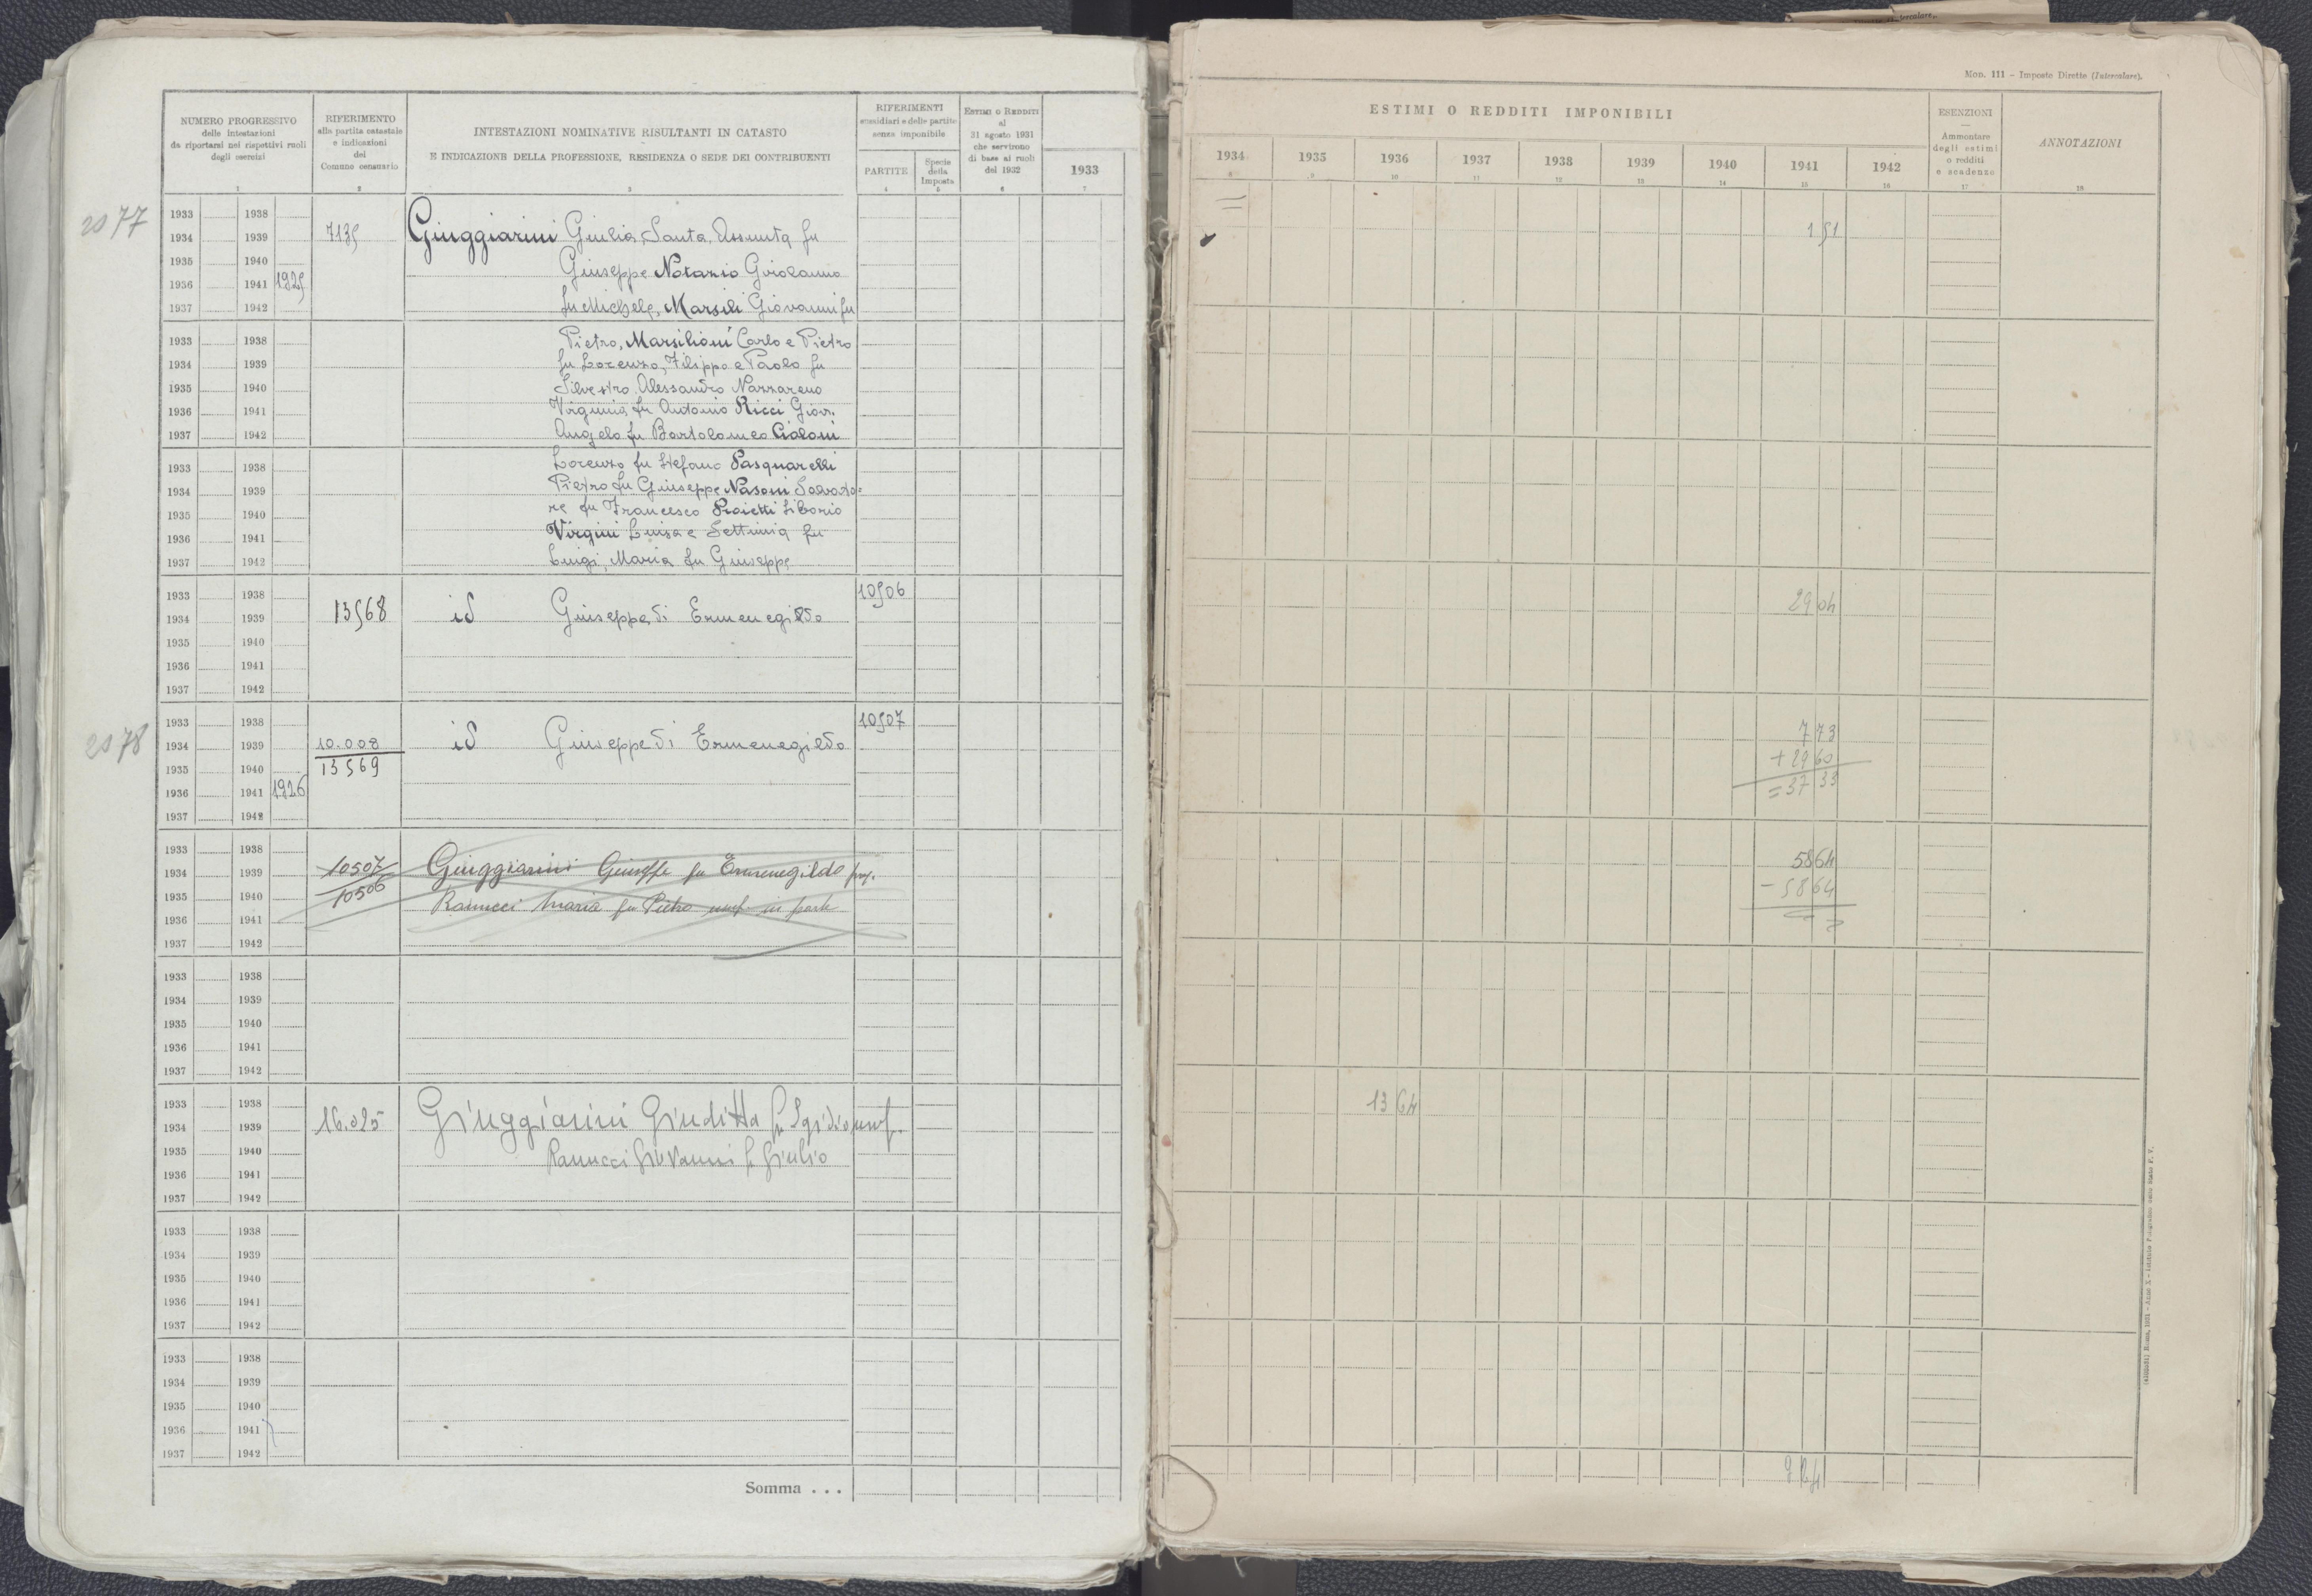 Intercalare.
Mon. 111 - Imposte Dirette (Intercalare).
NUMERO PROGRESSIVO
delle intestazioni
da riportarsi nei rispettivi ruoli
degli esercizi
1
RIFERIMENTO
alla partita catastale
e indicazioni
del
Comune censuario
2
INTESTAZIONI NOMINATIVE RISULTANTI IN CATASTO
E INDICAZIONE DELLA PROFESSIONE, RESIDENZA O SEDE DEI CONTRIBUENTI
3
RIFERIMENTI
sussidiari e delle partite
senza imponibile
PARTITE
4
Specie
della
Imposta
5
ESTIMI O REDDITI
al
31 agosto 1931
che servirono
di base ai ruoli
del 1932
6
1933
7
ESTIMI O REDDITI IMPONIBILI
1934 1935 1936 1937 1938 1939 1940 1941 1942
8 9 10 11 12 13 14 15 16
ESENZIONI
—
Ammontare
degli estimi
o redditi
e scadenza
17
ANNOTAZIONI
18
2077
1933 1938
1934 1939 7135 Giuggiarini Giulia, Santa, Assunta fu 1 51
1935 1940 Giuseppe Notazio Girolamo
1936 1941 1925 fu Michele, Marsili Giovanni fu
1937 1942
1933 1938 Pietro, Marsilioni Carlo e Pietro
1934 1939 fu Lorenzo, Filippo e Paolo fu
1935 1940 Silvestro Alessandro Nazzareno
1936 1941 Virginia fu Antonio Ricci Giov.
1937 1942 Angelo fu Bartolomeo Cialoni
1933 1938 Lorenzo fu Stefano Pasquarelli
1934 1939 Pietro fu Giuseppe Nasoni Salvato=
1935 1940 re fu Francesco Proietti Liborio
1936 1941 Virgini Luisa e Settimia fu
1937 1942 Luigi, Maria fu Giuseppe
1933 1938 10506
1934 1939 13568 id Giuseppe di Ermenegildo 29 04
1935 1940
1936 1941
1937 1942
2078
1933 1938 10507
1934 1939 10.008 id Giuseppe di Ermenegildo 7 73
1935 1940 13569 + 29 60
1936 1941 1926 = 37 33
1937 1942
1933 1938
1934 1939 10507 Giuggiarini Giuseppe fu Ermenegildo prop. 58 64
1935 1940 10506 Ranucci Maria fu Pietro usuf. in parte - 58 64
1936 1941
1937 1942
1933 1938
1934 1939
1935 1940
1936 1941
1937 1942
1933 1938
1934 1939 16.025 Giuggiarini Giuditta fu Egidio usuf. 13 64
1935 1940 Ranucci Giovanni fu Giulio
1936 1941
1937 1942
1933 1938
1934 1939
1935 1940
1936 1941
1937 1942
1933 1938
1934 1939
1935 1940
1936 1941
1937 1942
Somma . . .